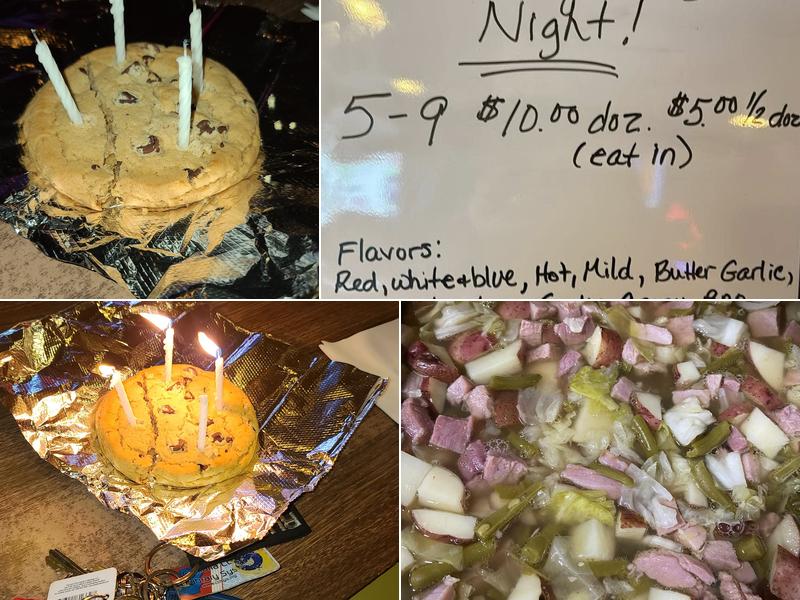 Night!
5-9 $10.00 doz. $5.00 1/2 doz
(eat in)
Flavors:
Red, white & blue, Hot, Mild, Butter Garlic,